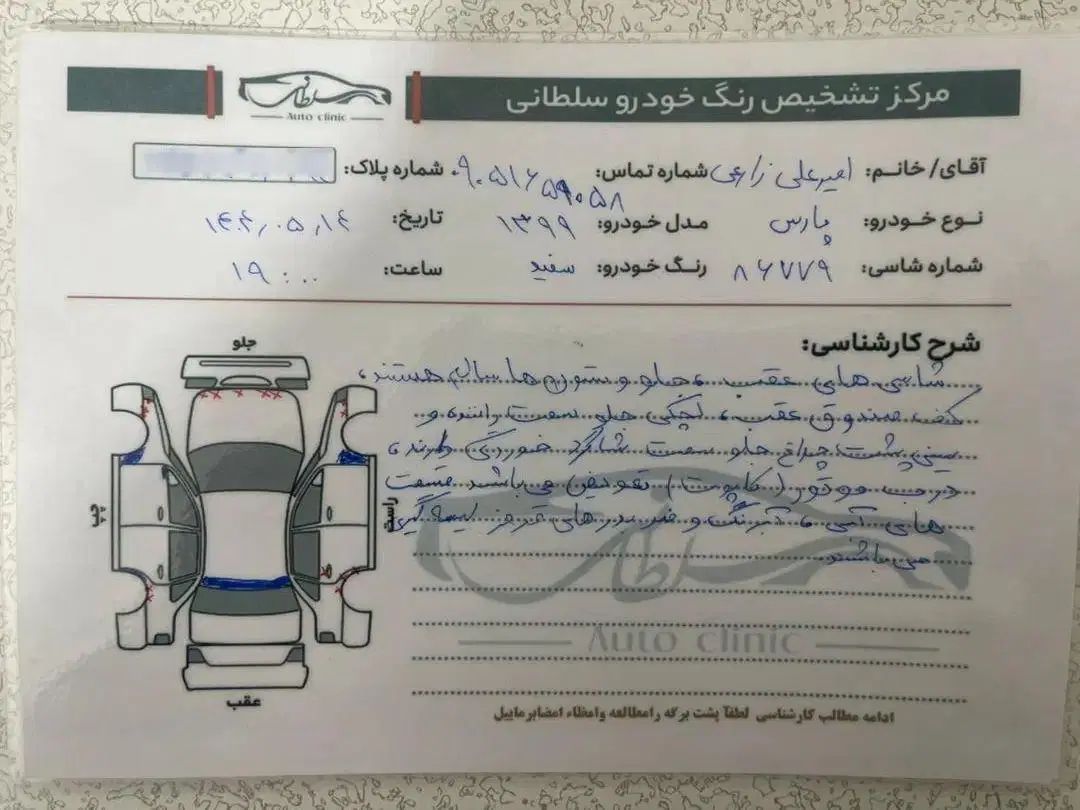 مرکز تشخیص رنگ خودرو سلطانی
سلطانی
Auto clinic
آقای/ خانـم: امیرعلی زارعی شماره تماس: ۰۹۰۵۱۶۵۹۰۵۸ شماره پلاک:
نـوع خـودرو: پارس مـدل خـودرو: ۱۳۹۹ تاریخ: ۱۴۰۴٫۰۵٫۱۴
شماره شاسی: ۸۶۷۷۹ رنـگ خودرو: سفید ساعت: ۱۹:۰۰
شرح کارشناسی:
شاسی های عقب، جلو و ستون ها سالم هستند،
کف صندوق عقب، لچکی جلو سمت راننده و
سینی پشت چراغ جلو سمت شاگرد خوردگی دارند،
درب موتور (کاپوت) تعویض می باشد قسمت
هایی آبی، آبرنگ و ضربدرهای قرمز لیسه گیری
می باشند.
جلو
چپ
راست
عقب
سلطانی
Auto clinic
ادامه مطالب کارشناسی لطفاً پشت برگه را مطالعه وامظاء امضابرماییل